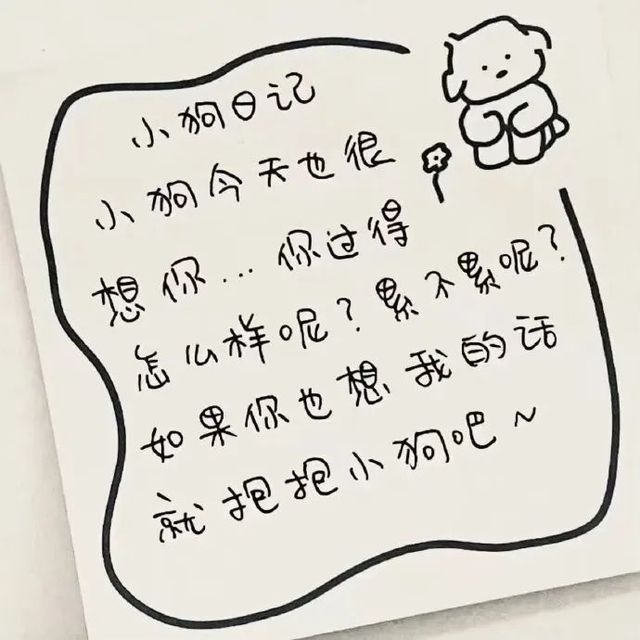 小狗日记
小狗今天也很
想你...你过得
怎么样呢？累不累呢？
如果你也想我的话
就抱抱小狗吧~